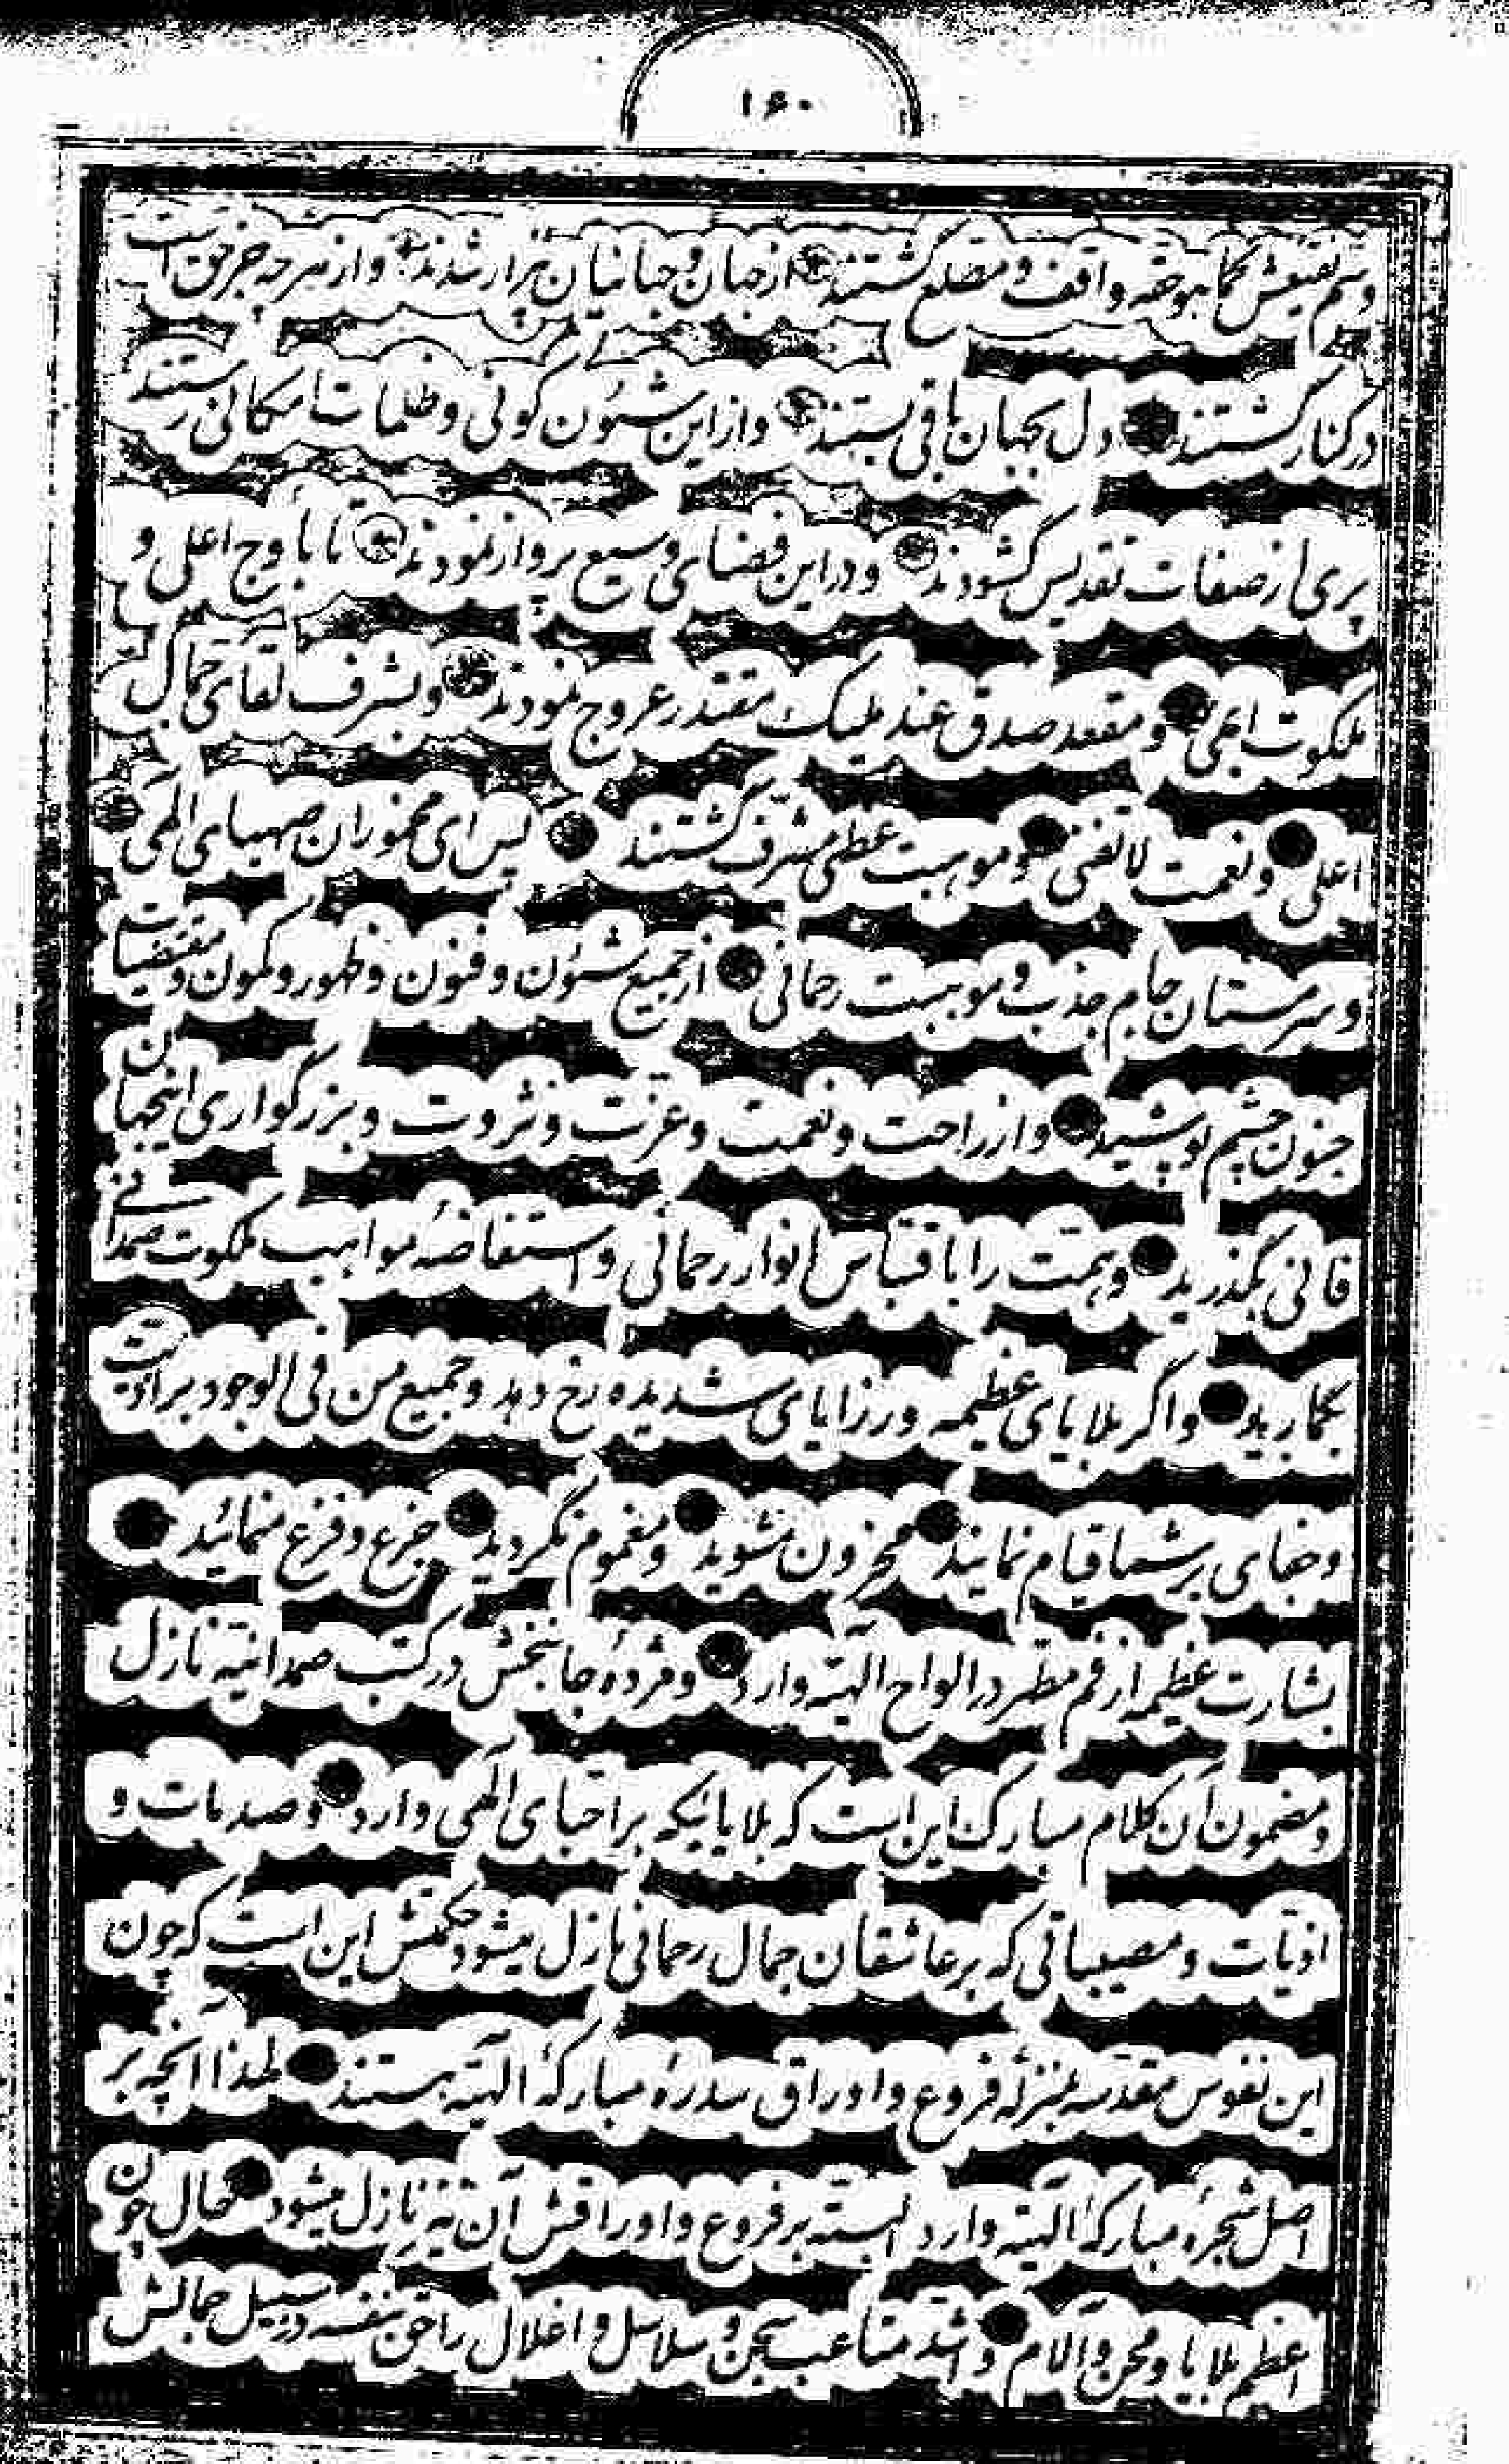 ۱۶۰
وسَم نقیعش کماهوحقه واقف و مطلع گشتند از جهان و جهانیان بیزار شدند و از هرچه جز حق است
در کنار گشتند دل بجهان باقی بستند و از این شئون کونی و ظلمات امکانی رستند
پری از صفات تقدیس گشودند و در این فضای وسیع پرواز نمودند تا باوج اعلی و
ملکوت ابهی و مقعد صدق عند ملیک مقتدر عروج نمودند و بشرف لقای جمال
اعلی و نعمت لاتفنی و موهبت عظمی مشرّف گشتند پس ای مخموران صهبای الهی
و سرمستان جام جذب و موهبت رحمانی از جمیع شئون و فنون و ظهور و کمون و مقتضیات
جنون چشم پوشید و از راحت و نعمت و عزت و ثروت و بزرگواری اینجهان
فانی بگذرید و همّت را باقتباس انوار رحمانی و استفاضهٔ مواهب ملکوت صمدانی
بگمارید و اگر بلایای عظیمه و رزایای شدیده رخ دهد و جمیع من فی الوجود بر اذیت
وجفای بر شما قیام نمایند محزون مشوید و مغموم نگردید جزع و فزع ننمائید
بشارت عظیمه از فم مطهّر در الواح الهیّه وارد و مژدهٔ جانبخش در کتب صمدانیّه نازل
و مضمون آن کلام مبارک این است که بلایائیکه بر احبای الهی وارد و صدمات و
اذیات و مصیباتی که بر عاشقان جمال رحمانی نازل میشود حکمتش این است که چون
این نفوس مقدّسه بمنزلهٔ فروع و اوراق سدرهٔ مبارکهٔ الهیّه هستند لهذا آنچه بر
اصل شجرهٔ مبارکهٔ الهیّه وارد البته بر فروع و اوراقش آن نیز نازل میشود حال چون
اعظم بلایا و محن و آلام و اشدّ متاعب سجن و سلاسل و اغلال را حق بنفسه در سبیل جمالش